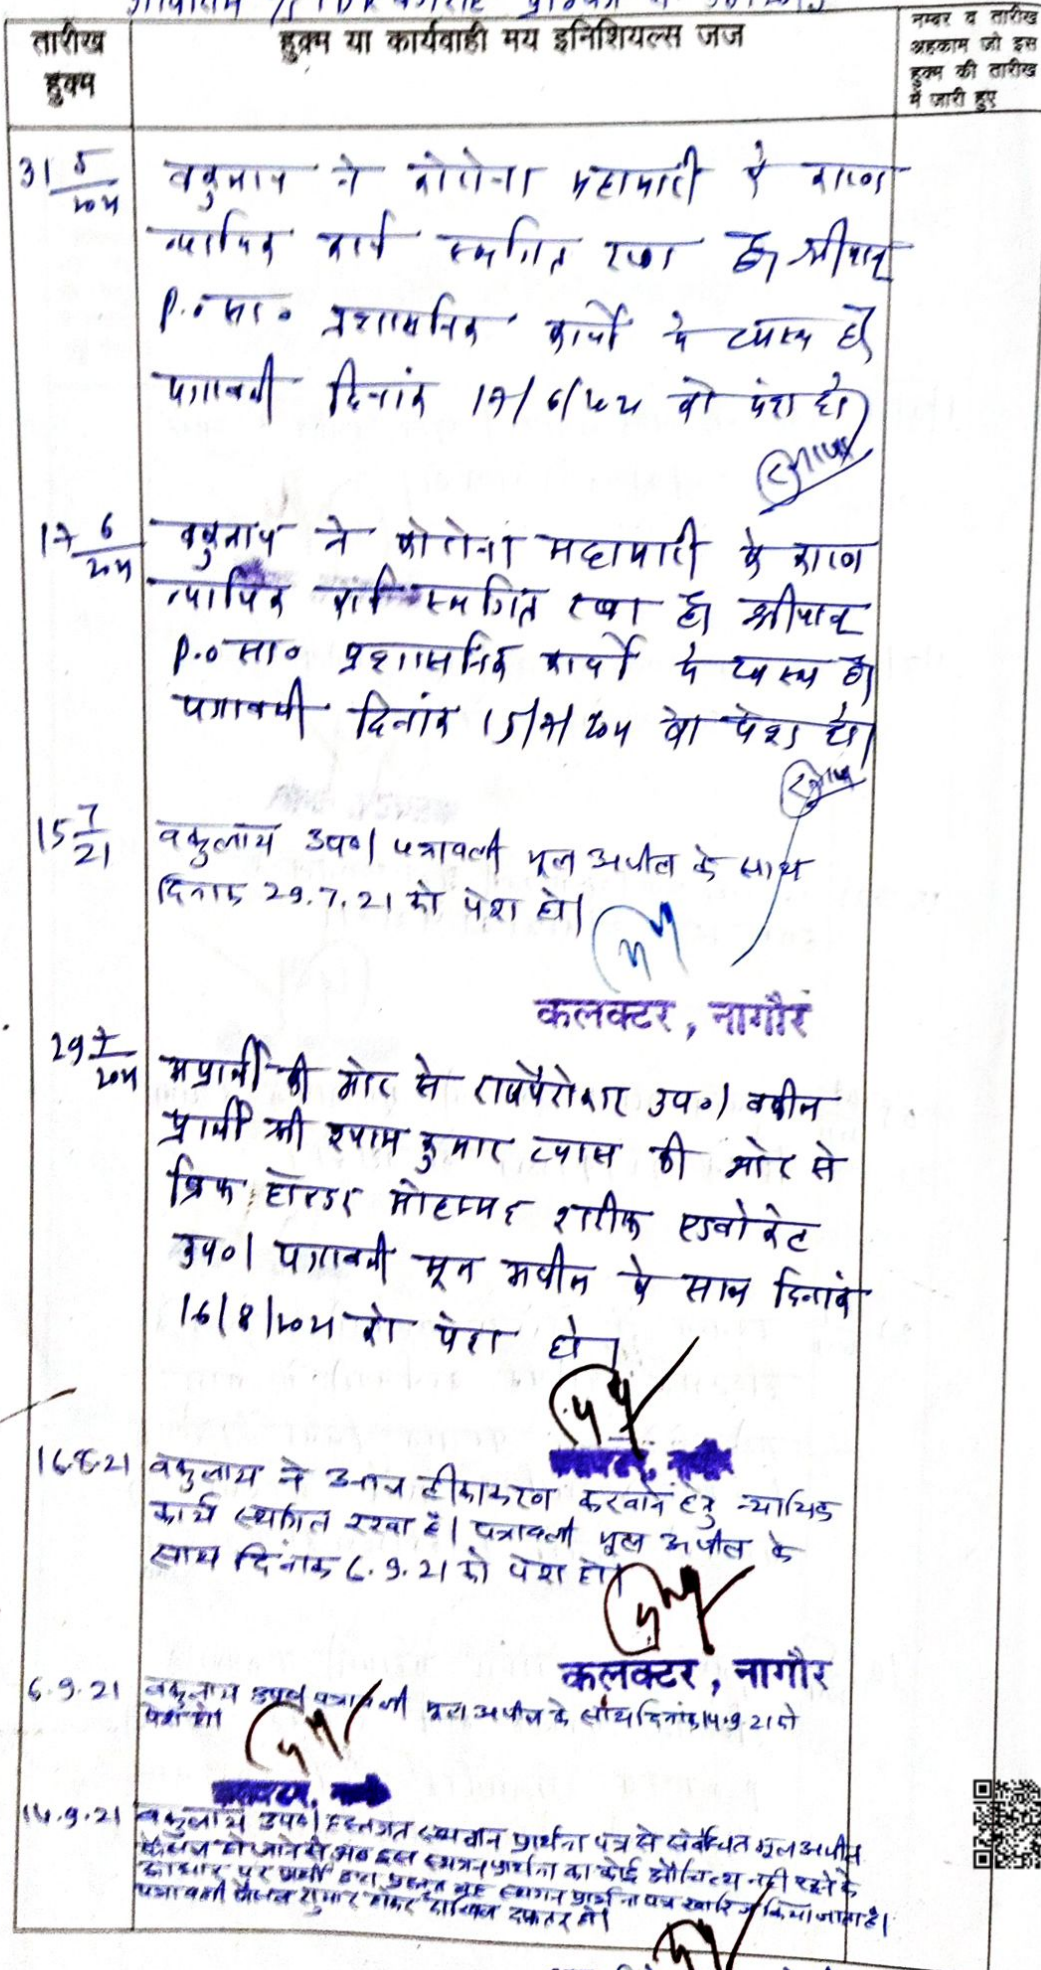 तारीख
हुक्म
हुक्म या कार्यवाही मय इनिशियल्स जज
नम्बर व तारीख
अहकाम जो इस
हुक्म की तारीख
में जारी हुए
31 5/2021
वकुलाय ने कोरोना महामारी के कारण
न्यायिक कार्य स्थगित रखा है। श्रीमान्
P.O सा० प्रशासनिक कार्यों में व्यस्त है।
पत्रावली दिनांक 17/6/2021 को पेश हो।
17 6/2021
वकुलाय ने कोरोना महामारी के कारण
न्यायिक कार्य स्थगित रखा है। श्रीमान्
P.O सा० प्रशासनिक कार्यों में व्यस्त है।
पत्रावली दिनांक 15/7/2021 को पेश हो।
15 7/21
वकुलाय उप०। पत्रावली मूल अपील के साथ
दिनांक 29.7.21 को पेश हो।
कलक्टर, नागौर
29 7/2021
अप्रार्थी की ओर से राजपैरोकार उप०। वकील
प्रार्थी श्री श्याम कुमार व्यास की ओर से
ब्रिफ होल्डर मोहम्मद शरीफ एडवोकेट
उप०। पत्रावली मूल अपील के साथ दिनांक
16/8/2021 को पेश हो।
16.8.21
वकुलाय ने आज टीकाकरण करवाने हेतु न्यायिक
कार्य स्थगित रखा है। पत्रावली मूल अपील के
साथ दिनांक 6.9.21 को पेश हो।
कलक्टर, नागौर
6.9.21
वकुलाय उप० पत्रावली मूल अपील के साथ दिनांक 14.9.21 को
पेश हो।
14.9.21
वकुलाय उप०। हस्तगत स्थगन प्रार्थना पत्र से संबंधित मूल अपील
हो जाने से अब इस स्थगन प्रार्थना का कोई औचित्य नहीं रहने के
आधार पर प्रार्थी द्वारा प्रस्तुत यह स्थगन प्रार्थना पत्र खारिज किया जाता है।
पत्रावली फैसल शुमार होकर दाखिल दफ्तर हो।